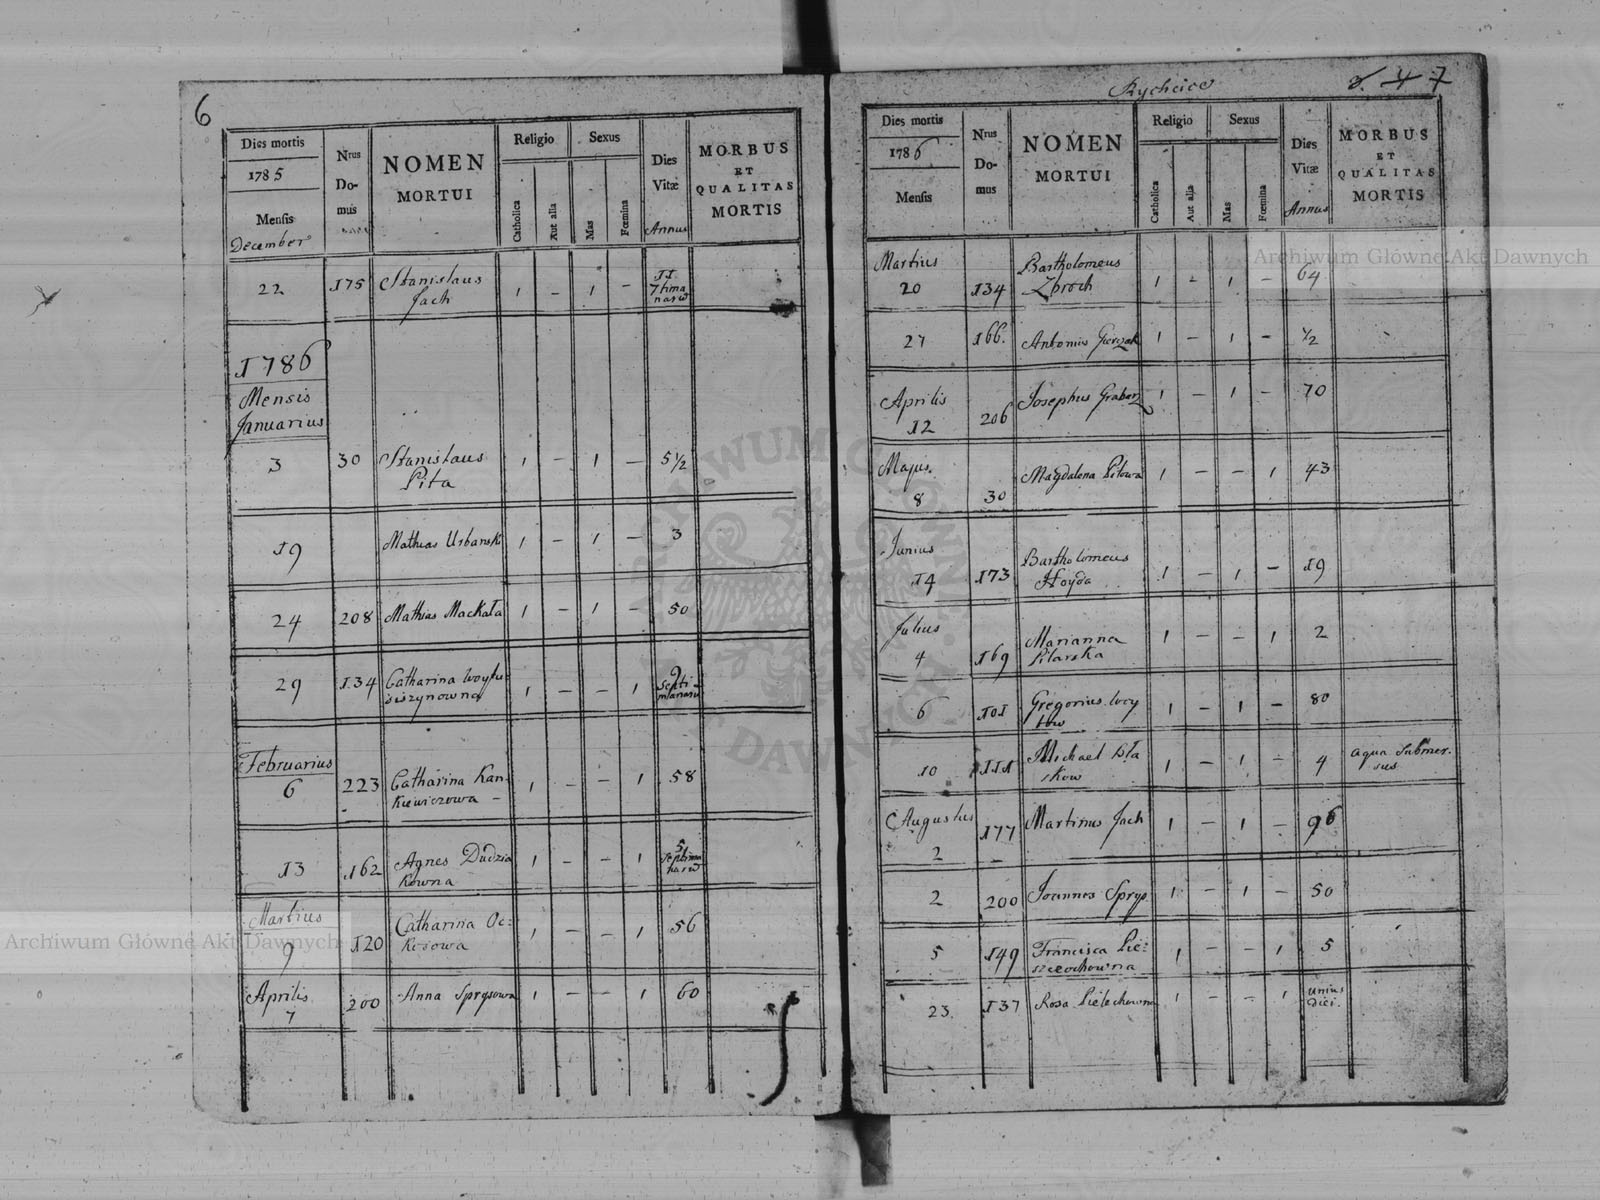 6
Dies mortis
1785
Mensis
December
Nrus
Do-
mus
NOMEN
MORTUI
Religio
Catholica
Aut alia
Sexus
Mas
Fœmina
Dies
Vitæ
Annus
MORBUS
ET
QUALITAS
MORTIS
22 175 Stanislaus
Jach 1 - 1 - 11
1786
Mensis
Januarius
3 30 Stanislaus
Pita 1 - 1 - 5 1/2
19 Mathias Urbanski 1 - 1 - 3
24 208 Mathias Mackała 1 - 1 - 50
29 134 Catharina 1 - - 1 9
Septi-
Februarius
6 223 Catharina Kan-
kiewiczowa 1 - - 1 58
13 162 Agnes Dudzia
kowna 1 - - 1 5
Martius
9 120 Catharina Oc-
kosowa 1 - - 1 56
Aprilis
7 200 Anna Sprysowa 1 - - 1 60
Rychcice
7
Dies mortis
1786
Mensis
Nrus
Do-
mus
NOMEN
MORTUI
Religio
Catholica
Aut alia
Sexus
Mas
Fœmina
Dies
Vitæ
Annus
MORBUS
ET
QUALITAS
MORTIS
Martius
20 134 Bartholomeus
Zbroch 1 - 1 - 64
27 166. Antonius 1 - 1 - 1/2
Aprilis
12 206 Josephus Graberz 1 - 1 - 70
Majus.
8 30 Magdalena Pitowa 1 - - 1 43
Junius
14 173 Bartholomeus
Hoyda 1 - 1 - 19
Julius
4 169 Marianna
Pilarska 1 - - 1 2
6 101 Gregorius Woy
tow 1 - 1 - 80
10 111 Michael
1 - 1 - 4 aqua submer-
sus
Augustus
2 177 Martinus Jach 1 - 1 - 96
2 200 Joannes Sprys 1 - 1 - 50
5 149 Francisca Pie-
1 - - 1 5
23 137 Rosa Pielechowna 1 - - 1 unius
diei.
Archiwum Główne Akt Dawnych
Archiwum Główne Akt Dawnych
ARCHIWUM GŁÓWNE AKT DAWNYCH